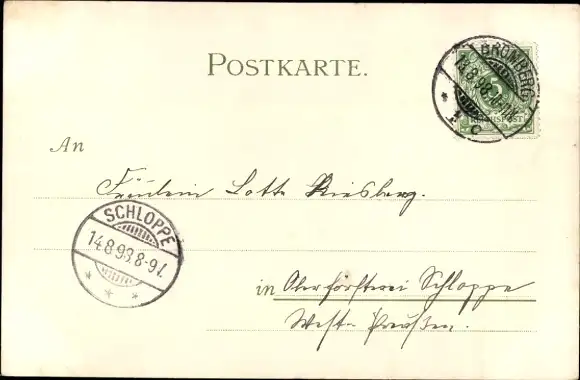 POSTKARTE.
BROMBERG
14.8.98.
1 c
5
REICHSPOST
An
Fräulein Lotte Kiesberg.
SCHLOPPE
14.8.98.8-9V.
in Oberförsterei Schloppe
West-Preußen.